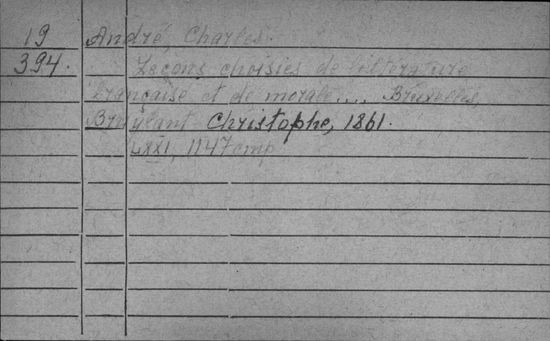 19 André, Charles.
394. Leçons choisies de littérature
française et de morale.... Bruxelles,
Bruylant Christophe, 1861.
LXXI, 1147 cmp